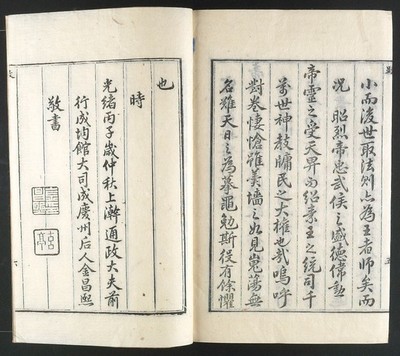 小而後世取法則亦為王者師矣而
况 昭烈帝忠武侯之盛德偉勳
帝靈之受天畀而紹素王之統司千
萬世神教牖民之大權也哉嗚呼
對卷悽愴雖羹墻之如見嵬蕩無
名雖天日之為摹黽勉斯役有餘懼
也
時
光緒丙子歲仲秋上澣通政大夫前
行成均館大司成慶州后人金昌熙
敬書